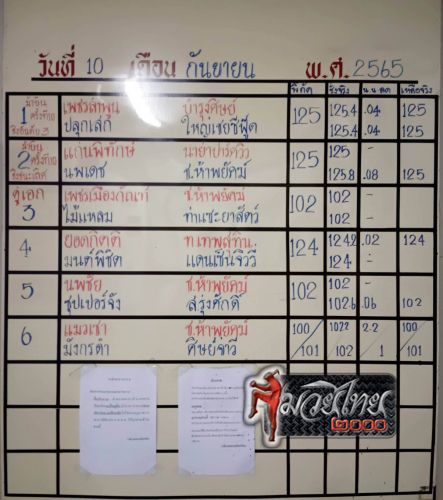 วันที่ 10 เดือน กันยายน พ.ศ. 2565
พิกัด ชั่งจริง น.น.ลด เหลือจริง
1 เพชรลำพูน บำรุงศิษย์ 125 125.4 .04 125
ปลุกเสก ใหญ่เชยซีฟู๊ด 125.4 .04 125
2 แก่นพิทักษ์ นายาปาร์ควิว 125 125 -
นพเดช ช.ห้าพยัคฆ์ 125.8 .08 125
คู่เอก
3 เพชรเมืองกัณฑ์ ช.ห้าพยัคฆ์ 102 102 -
ไม้แหลม 102 -
4 ยอดกิตติ ท.เทพสุทิน 124 124.2 .02 124
มนต์พิชิต แดนเซ็นจิวรี่ 124 -
5 นพชัย ช.ห้าพยัคฆ์ 102 102 -
ซุปเปอร์จัง ส.รุ่งศักดิ์ 102.6 .06 102
6 แมวเซา ช.ห้าพยัคฆ์ 100 102.2 2.2 100
มังกรดำ ศิษย์จ่าวี 101 102 1 101
มวยไทย
๒๐๐๐